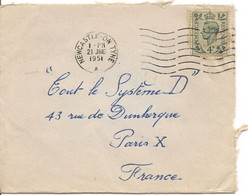 NEWCASTLE-ON-TYNE
1 - PM
21 JNE
1951
A
"Tout le Système D"
43 rue de Dunkerque
Paris X
France